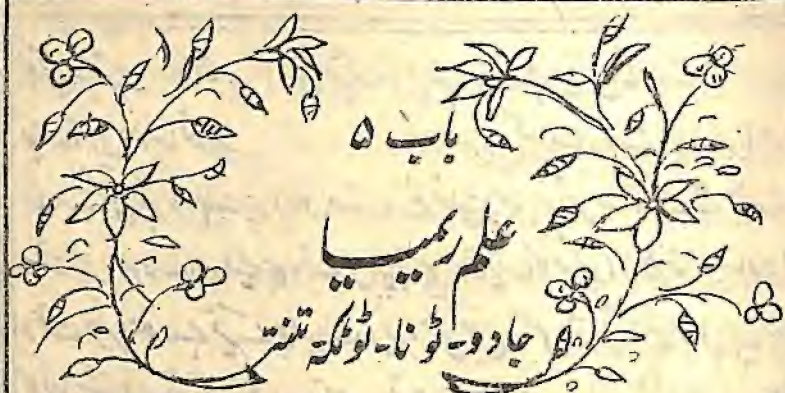 باب ۵
علم ریمیا
جادو - ٹونا - ٹوٹکہ - تنتر